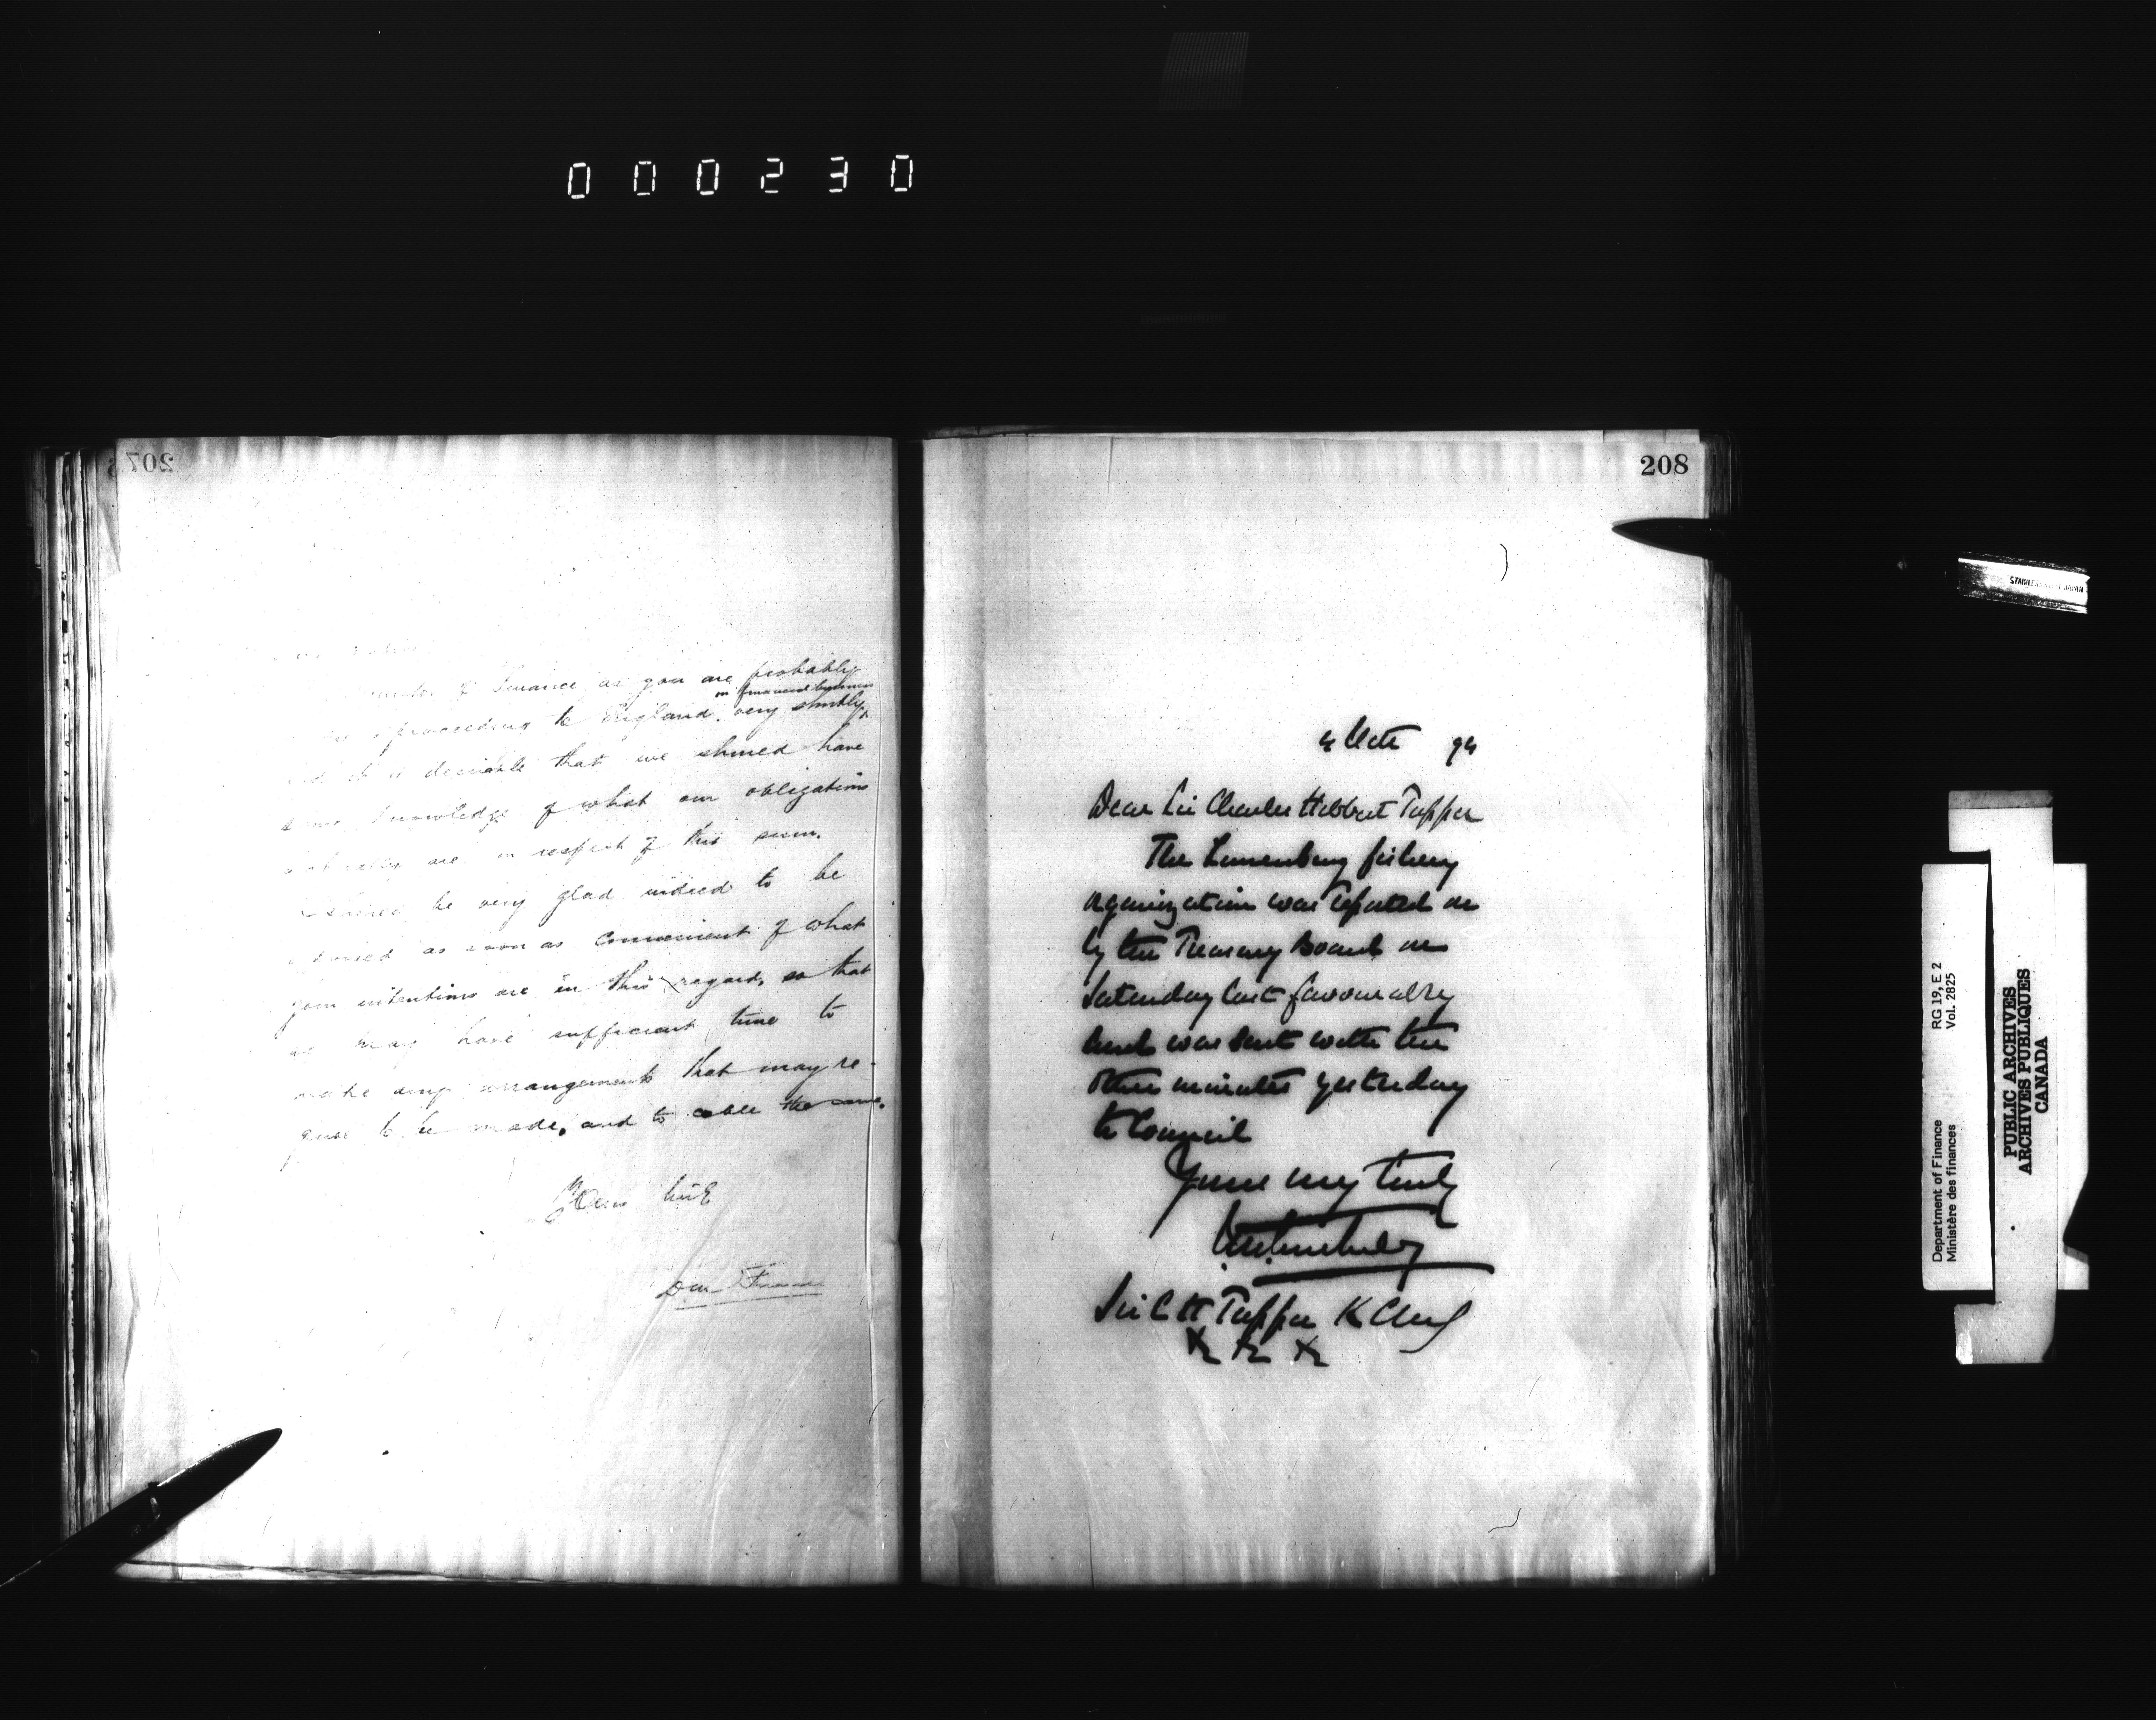 000230
207
Minister of Finance as you are probably
proceeding to England very shortly
on financial business
it is desirable that we should have
some knowledge of what our obligations
actually are in respect of this sum.
I should be very glad indeed to be
advised as soon as convenient of what
your intentions are in this regard, so that
we may have sufficient time to
make any arrangements that may re-
quire to be made, and to cable the same.
208
4 Octr 94
Dear Sir Charles Hibbert Tupper
The Lunenburg fishery
organization was reported on
by the Treasury Board on
Saturday last favourably
and was sent with the
other minutes yesterday
to Council
Yours very truly
Sir C H Tupper KCMG
RG 19, E 2
Vol. 2825
Department of Finance
Ministère des finances
PUBLIC ARCHIVES
ARCHIVES PUBLIQUES
CANADA